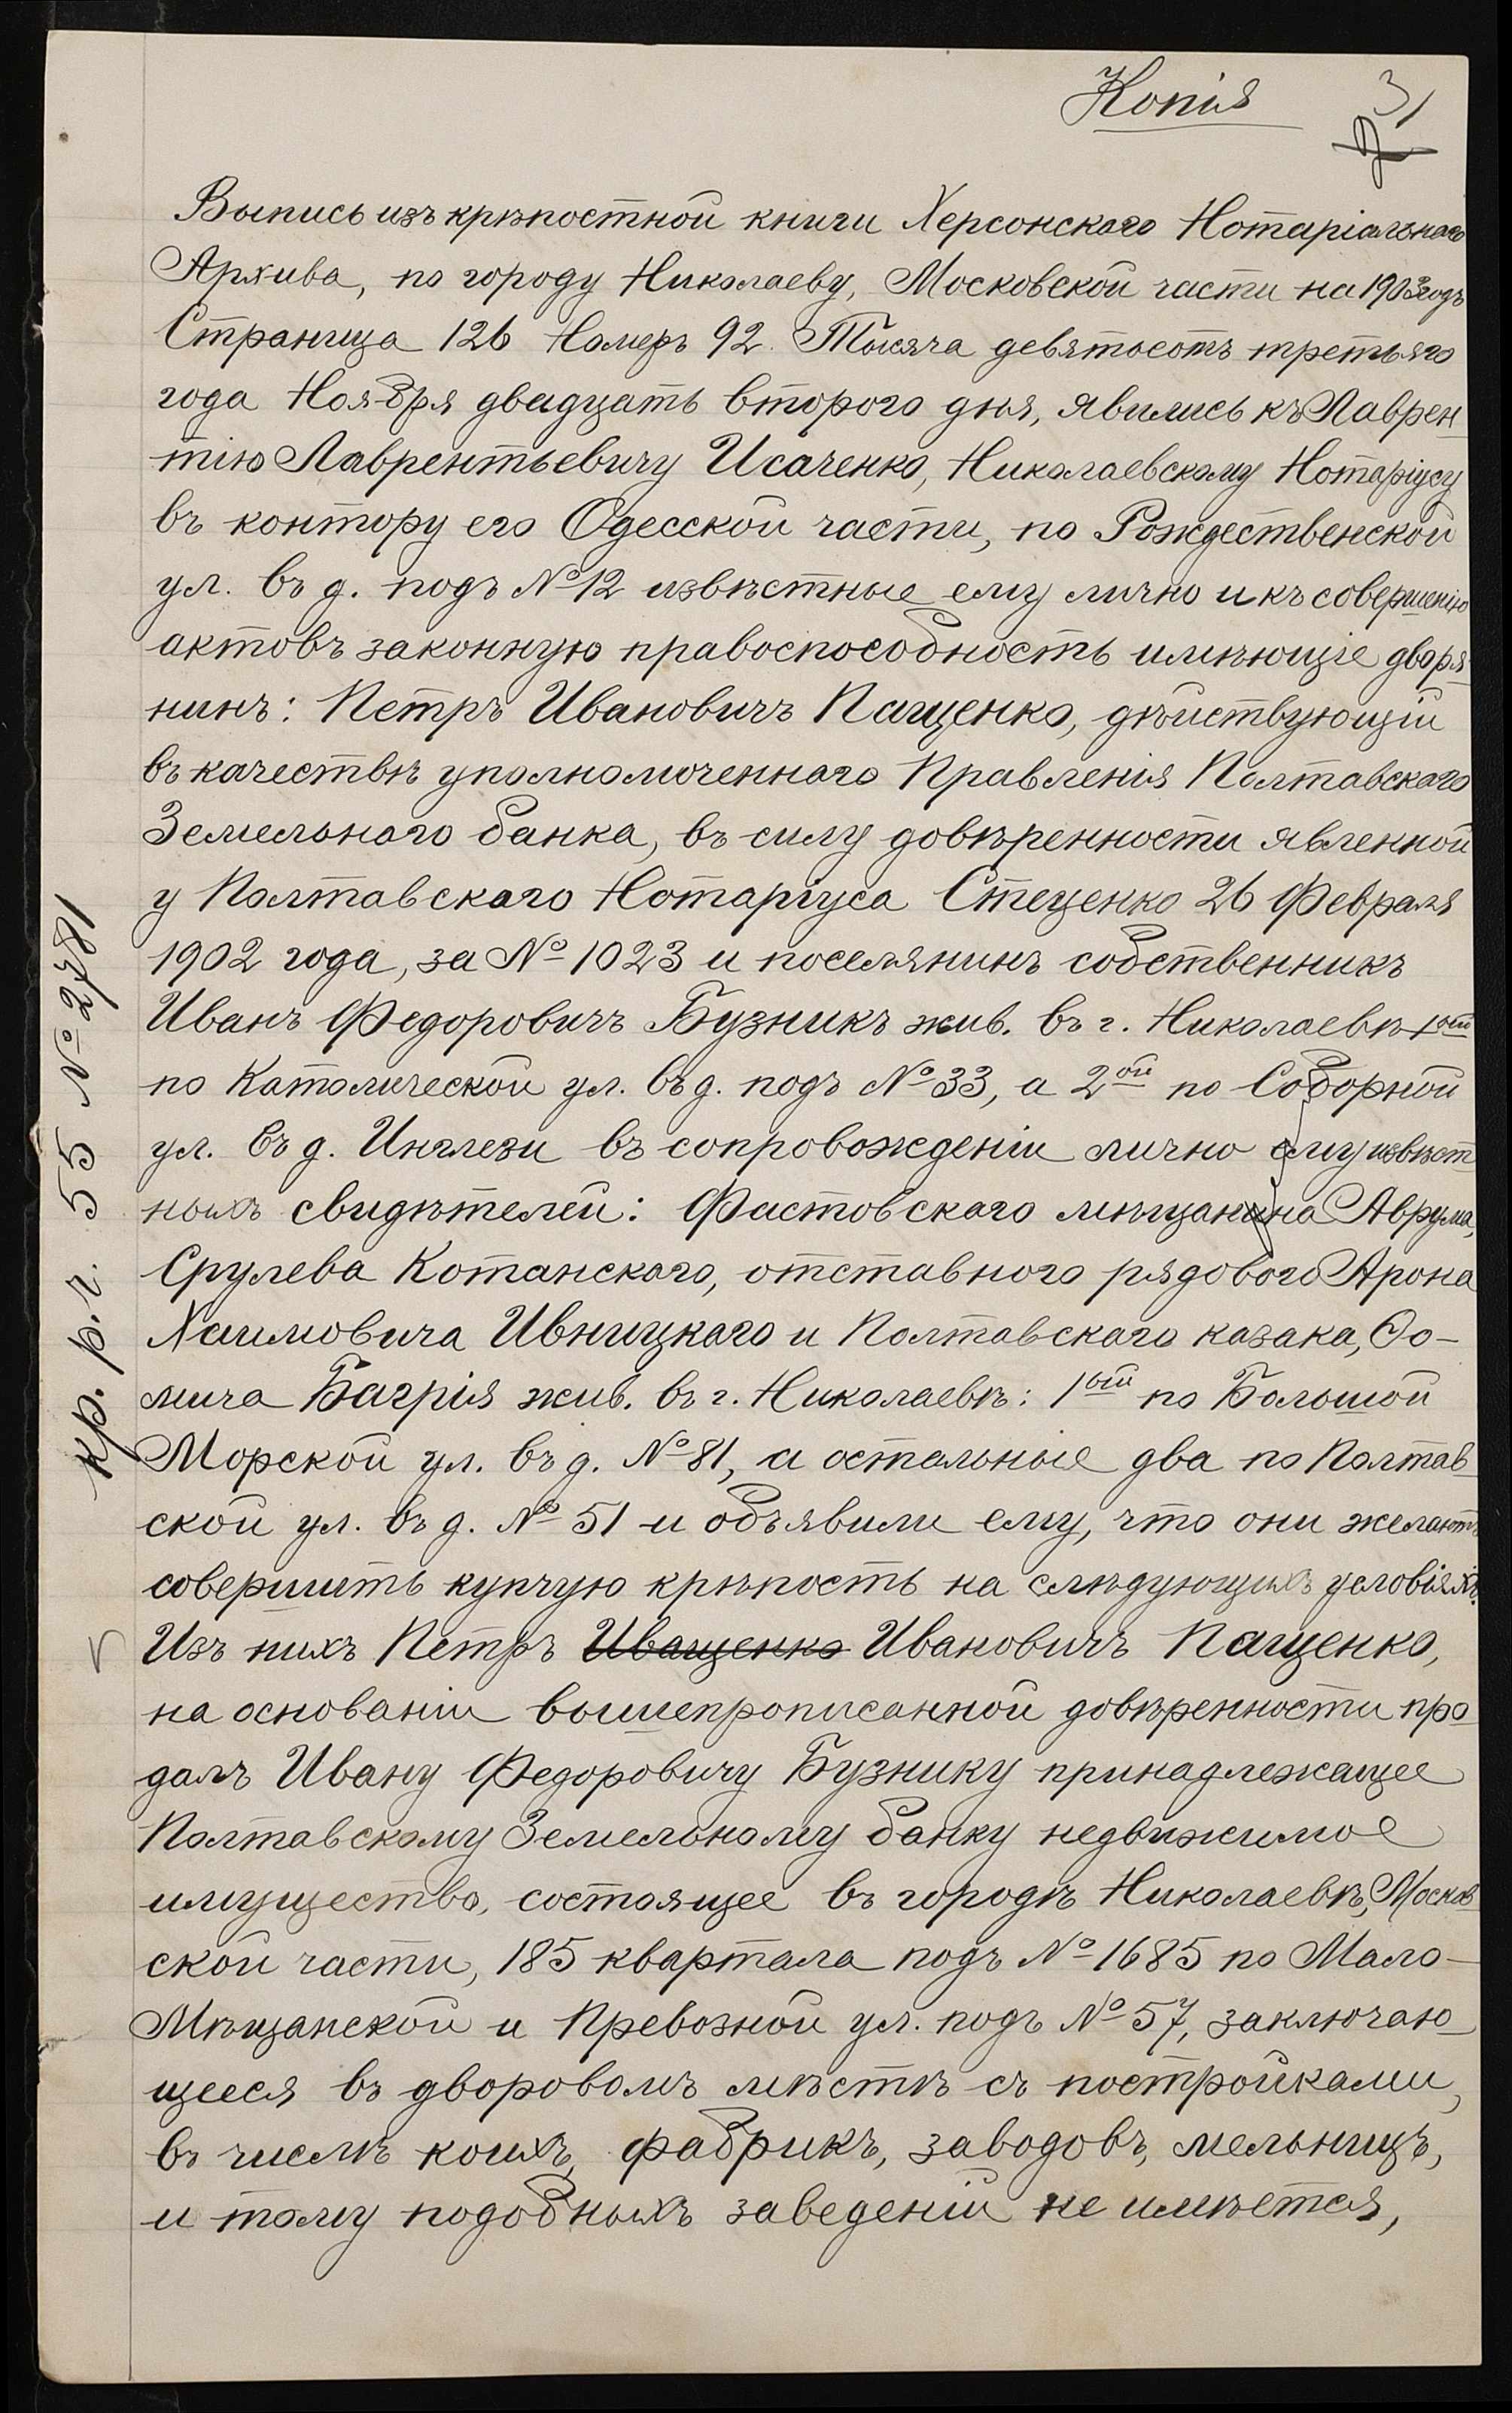 Копія
31
Выпись изъ крѣпостной книги Херсонскаго Нотаріальнаго
Архива, по городу Николаеву, Московской части на 1903 годъ
Страница 126 Номеръ 92. Тысяча девятьсотъ третьяго
года Ноября двадцать второго дня, явились къ Лаврен-
тію Лаврентьевичу Исаченко, Николаевскому Нотаріусу
въ контору его Одесской части, по Рождественской
ул. въ д. подъ № 12 извѣстные ему лично и къ совершенію
актовъ законную правоспособность имѣющіе дворя-
нинъ: Петръ Ивановичъ Пащенко, дѣйствующій
въ качествѣ уполномоченнаго Правленія Полтавскаго
Земельнаго банка, въ силу довѣренности явленной
у Полтавскаго Нотаріуса Стеценко 26 Февраля
1902 года, за № 1023 и поселянинъ собственникъ
Иванъ Федоровичъ Бузникъ жив. въ г. Николаевѣ 1ый
по Католической ул. въ д. подъ № 33, а 2ой по Соборной
ул. въ д. Инглези въ сопровожденіи лично ему извѣст
ныхъ свидѣтелей: Фастовскаго мѣщанина Аврума,
Срулева Котанскаго, отставного рядового Арона
Хаимовича Ивницкаго и Полтавскаго казака, Ѳо-
мича Багрія жив. въ г. Николаевѣ: 1ый по Большой
Морской ул. въ д. № 81, а остальные два по Полтав
ской ул. въ д. № 51 и объявили ему, что они желаютъ
совершить купчую крѣпость на слѣдующихъ условіяхъ.
Изъ нихъ Петръ Иващенко Ивановичъ Пащенко,
на основаніи вышепрописанной довѣренности про
далъ Ивану Федоровичу Бузнику принадлежащее
Полтавскому Земельному банку недвижимое
имущество, состоящее въ городѣ Николаевѣ, Москов
ской части, 185 квартала подъ № 1685 по Мало-
Мѣщанской и Превозной ул. подъ № 57, заключаю
щееся въ дворовомъ мѣстѣ съ постройками,
въ числѣ коихъ, фабрикъ, заводовъ, мельницъ,
и тому подобныхъ заведеній не имѣется,
кр. р. г. 55 № 2781